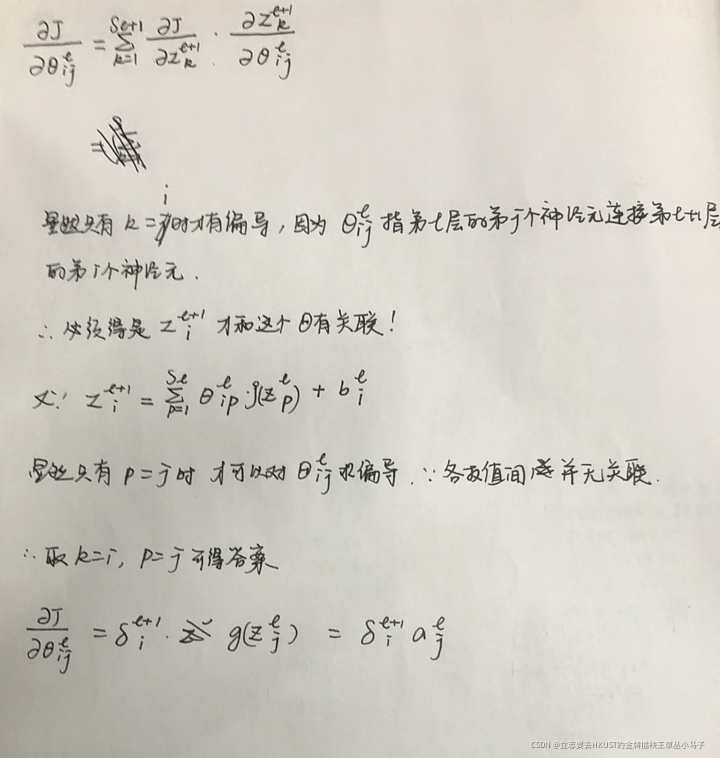 ∂J/∂θ^ℓ_ij = Σ_{k=1}^{S_{ℓ+1}} ∂J/∂z^{ℓ+1}_k · ∂z^{ℓ+1}_k/∂θ^ℓ_ij
=
显然只有 k = i 时才有偏导，因为 θ^ℓ_ij 指第ℓ层的第j个神经元连接第ℓ+1层
的第i个神经元.
∴ 必须得是 z^{ℓ+1}_i 才和这个θ有关联！
又∵ z^{ℓ+1}_i = Σ_{p=1}^{S_ℓ} θ^ℓ_ip g(z^ℓ_p) + b^ℓ_i
显然只有 p = j 时 才可以对 θ^ℓ_ij 求偏导. ∵ 各权值间并无关联.
∴ 取 k=i, p=j 可得答案
∂J/∂θ^ℓ_ij = δ^{ℓ+1}_i · g(z^ℓ_j) = δ^{ℓ+1}_i a^ℓ_j
CSDN @立志要去HKUST的金牌插秧王草丛小马子